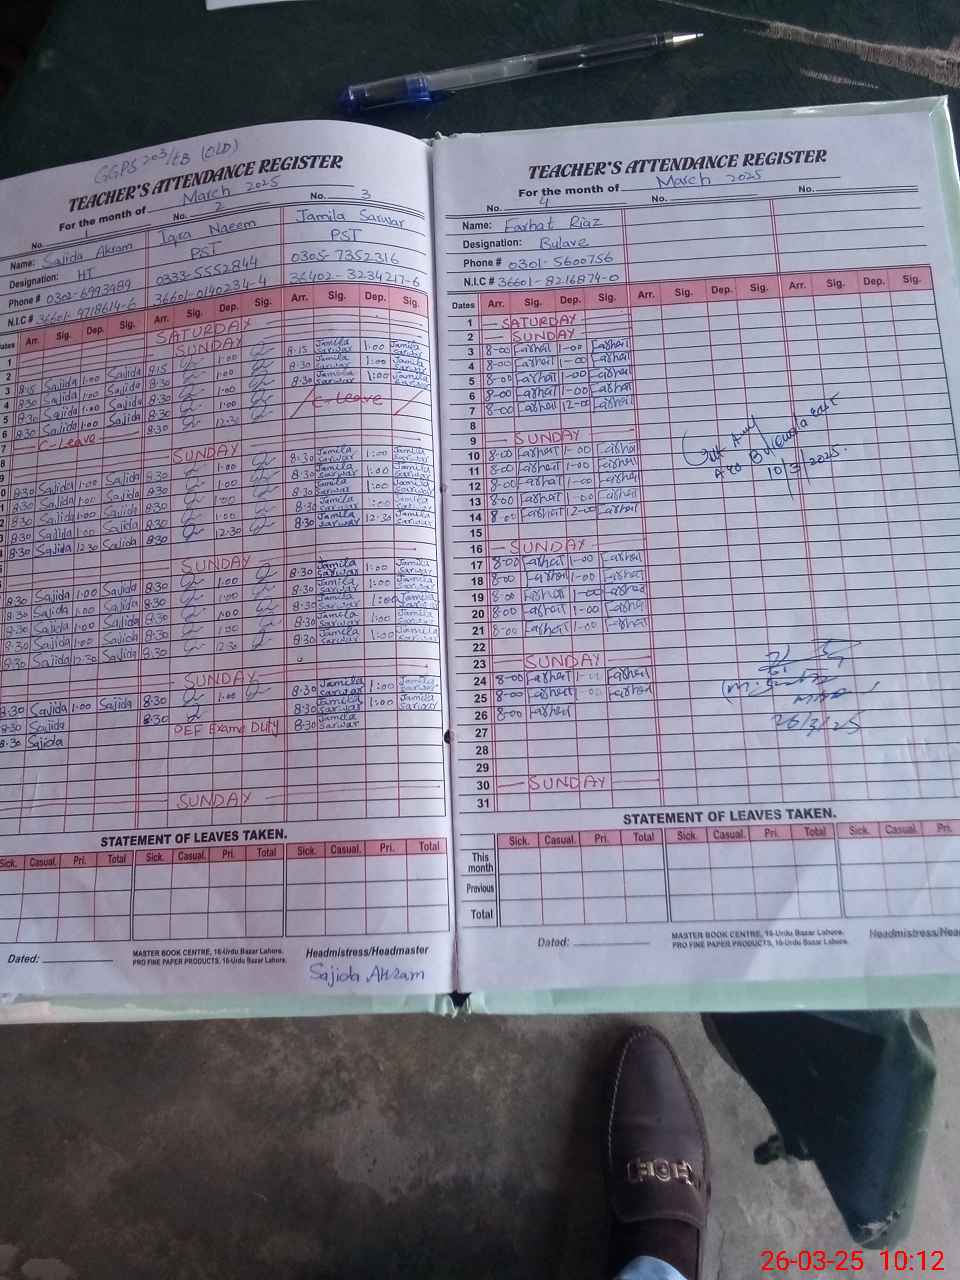 GGPS 203/EB (OLD)
TEACHER'S ATTENDANCE REGISTER
For the month of March 2025
No. 1 No. 2 No. 3
Name: Sajida Akram Iqra Naeem Jamila Sarwar
Designation: HT PST PST
Phone # 0302-6993489 0333-5552844 0305-7352316
N.I.C # 36601-9718614-6 36601-0140234-4 36402-3234217-6
Dates Arr. Sig. Dep. Sig. Arr. Sig. Dep. Sig. Arr. Sig. Dep. Sig.
1 SATURDAY
2 SUNDAY
3 8:15 Sajida 1:00 Sajida 8:15 1:00 8:15 Jamila Sarwar 1:00 Jamila Sarwar
4 8:30 Sajida 1:00 Sajida 8:30 1:00 8:30 Jamila Sarwar 1:00 Jamila Sarwar
5 8:30 Sajida 1:00 Sajida 8:30 1:00 8:30 Jamila Sarwar 1:00 Jamila Sarwar
6 8:30 Sajida 1:00 Sajida 8:30 1:00 C-Leave
7 C-Leave 8:30 12:30
8
SUNDAY
8:30 Sajida 1:00 Sajida 8:30 1:00 8:30 Jamila Sarwar 1:00 Jamila Sarwar
8:30 Sajida 1:00 Sajida 8:30 1:00 8:30 Jamila Sarwar 1:00 Jamila Sarwar
8:30 Sajida 1:00 Sajida 8:30 1:00 8:30 Jamila Sarwar 1:00 Jamila Sarwar
8:30 Sajida 1:00 Sajida 8:30 1:00 8:30 Jamila Sarwar 1:00 Jamila Sarwar
8:30 Sajida 12:30 Sajida 8:30 12:30 8:30 Jamila Sarwar 12:30 Jamila Sarwar
SUNDAY
8:30 Sajida 1:00 Sajida 8:30 1:00 8:30 Jamila Sarwar 1:00 Jamila Sarwar
8:30 Sajida 1:00 Sajida 8:30 1:00 8:30 Jamila Sarwar 1:00 Jamila Sarwar
8:30 Sajida 1:00 Sajida 8:30 1:00 8:30 Jamila Sarwar 1:00 Jamila Sarwar
8:30 Sajida 1:00 Sajida 8:30 1:00 8:30 Jamila Sarwar 1:00 Jamila Sarwar
8:30 Sajida 12:30 Sajida 8:30 12:30
SUNDAY
8:30 Sajida 1:00 Sajida 8:30 1:00 8:30 Jamila Sarwar 1:00 Jamila Sarwar
8:30 Sajida 8:30 8:30 Jamila Sarwar 1:00 Jamila Sarwar
8:30 Sajida PEF Exame Duty 8:30 Jamila Sarwar
SUNDAY
STATEMENT OF LEAVES TAKEN.
Sick. Casual. Pri. Total Sick. Casual. Pri. Total Sick. Casual. Pri. Total
Dated: MASTER BOOK CENTRE, 16-Urdu Bazar Lahore.
PRO FINE PAPER PRODUCTS, 16-Urdu Bazar Lahore.
Headmistress/Headmaster
Sajida Akram
TEACHER'S ATTENDANCE REGISTER
For the month of March 2025
No. 4 No. No.
Name: Farhat Riaz
Designation: Bulave
Phone # 0301-5600756
N.I.C # 36601-8216874-0
Dates Arr. Sig. Dep. Sig. Arr. Sig. Dep. Sig. Arr. Sig. Dep. Sig.
1 SATURDAY
2 SUNDAY
3 8-00 Farhat 1-00 Farhat
4 8-00 Farhat 1-00 Farhat
5 8-00 Farhat 1-00 Farhat
6 8-00 Farhat 1-00 Farhat
7 8-00 Farhat 12-00 Farhat
8
9 SUNDAY
10 8-00 Farhat 1-00 Farhat
11 8-00 Farhat 1-00 Farhat
12 8-00 Farhat 1-00 Farhat
13 8-00 Farhat 1-00 Farhat
14 8-00 Farhat 12-00 Farhat
10/3/2025.
15
16 SUNDAY
17 8-00 Farhat 1-00 Farhat
18 8-00 Farhat 1-00 Farhat
19 8-00 Farhat 1-00 Farhat
20 8-00 Farhat 1-00 Farhat
21 8-00 Farhat 1-00 Farhat
22
23 SUNDAY
24 8-00 Farhat 1-00 Farhat
25 8-00 Farhat 1-00 Farhat
26 8-00 Farhat
26/3/25
27
28
29
30 SUNDAY
31
STATEMENT OF LEAVES TAKEN.
Sick. Casual. Pri. Total Sick. Casual. Pri. Total Sick. Casual. Pri.
This month
Previous
Total
Dated: MASTER BOOK CENTRE, 16-Urdu Bazar Lahore.
PRO FINE PAPER PRODUCTS, 16-Urdu Bazar Lahore.
Headmistress/Hea
26-03-25 10:12